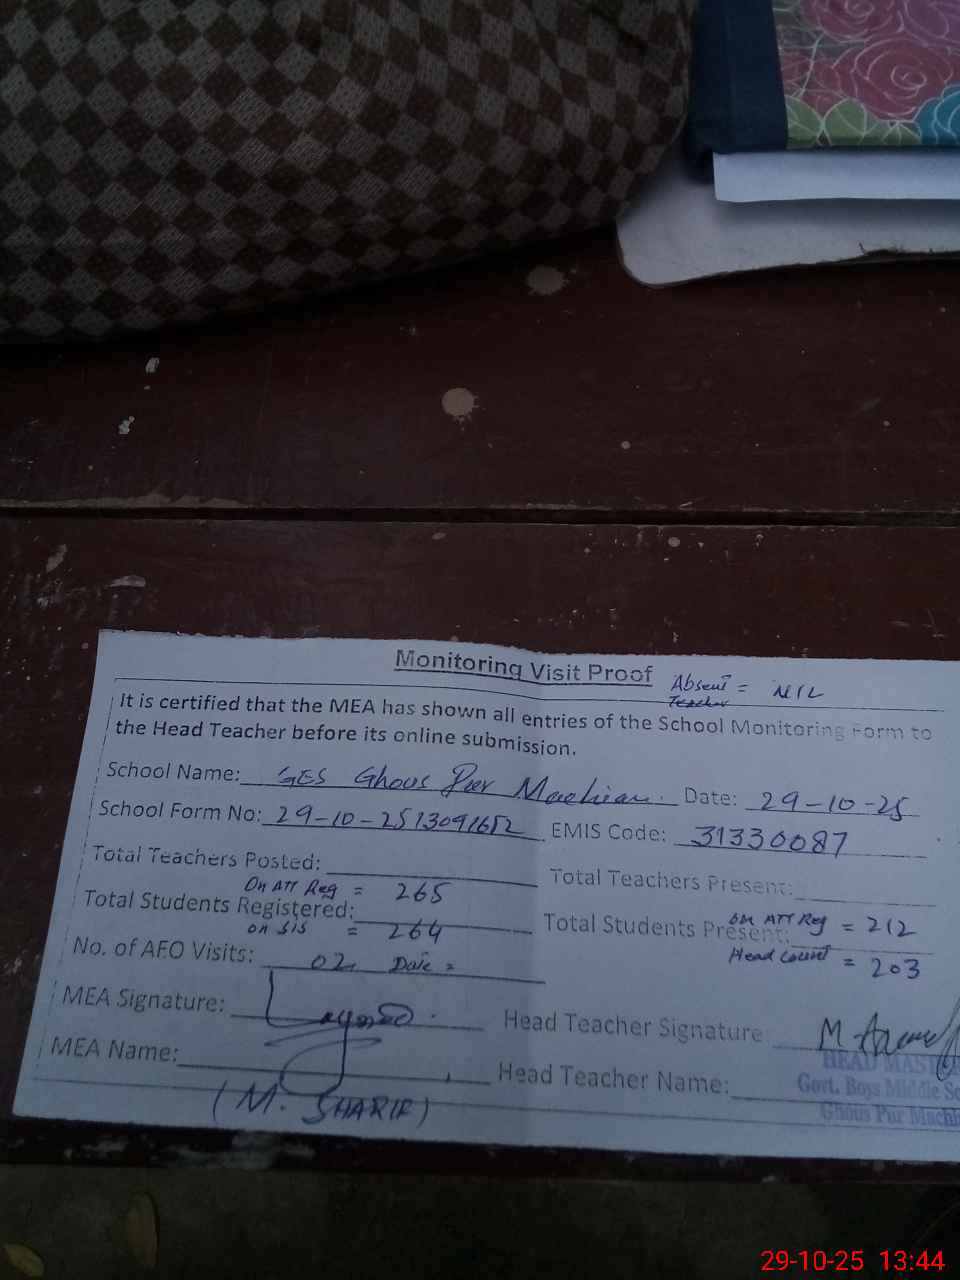 Monitoring Visit Proof
Absent Teacher = NIL
It is certified that the MEA has shown all entries of the School Monitoring Form to
the Head Teacher before its online submission.
School Name: GES Ghous Pur Machian. Date: 29-10-25
School Form No: 29-10-2513091652 EMIS Code: 31330087
Total Teachers Posted: Total Teachers Present:
On ATT Reg = 265
Total Students Registered: Total Students Present: on ATT Reg = 212
on SIS = 264
Head Count = 203
No. of AEO Visits: 02 Date =
MEA Signature: Head Teacher Signature:
HEAD MAST
MEA Name: Head Teacher Name:
Govt. Boys Middle Sc
Ghous Pur Machh
(M. SHARIF)
29-10-25 13:44